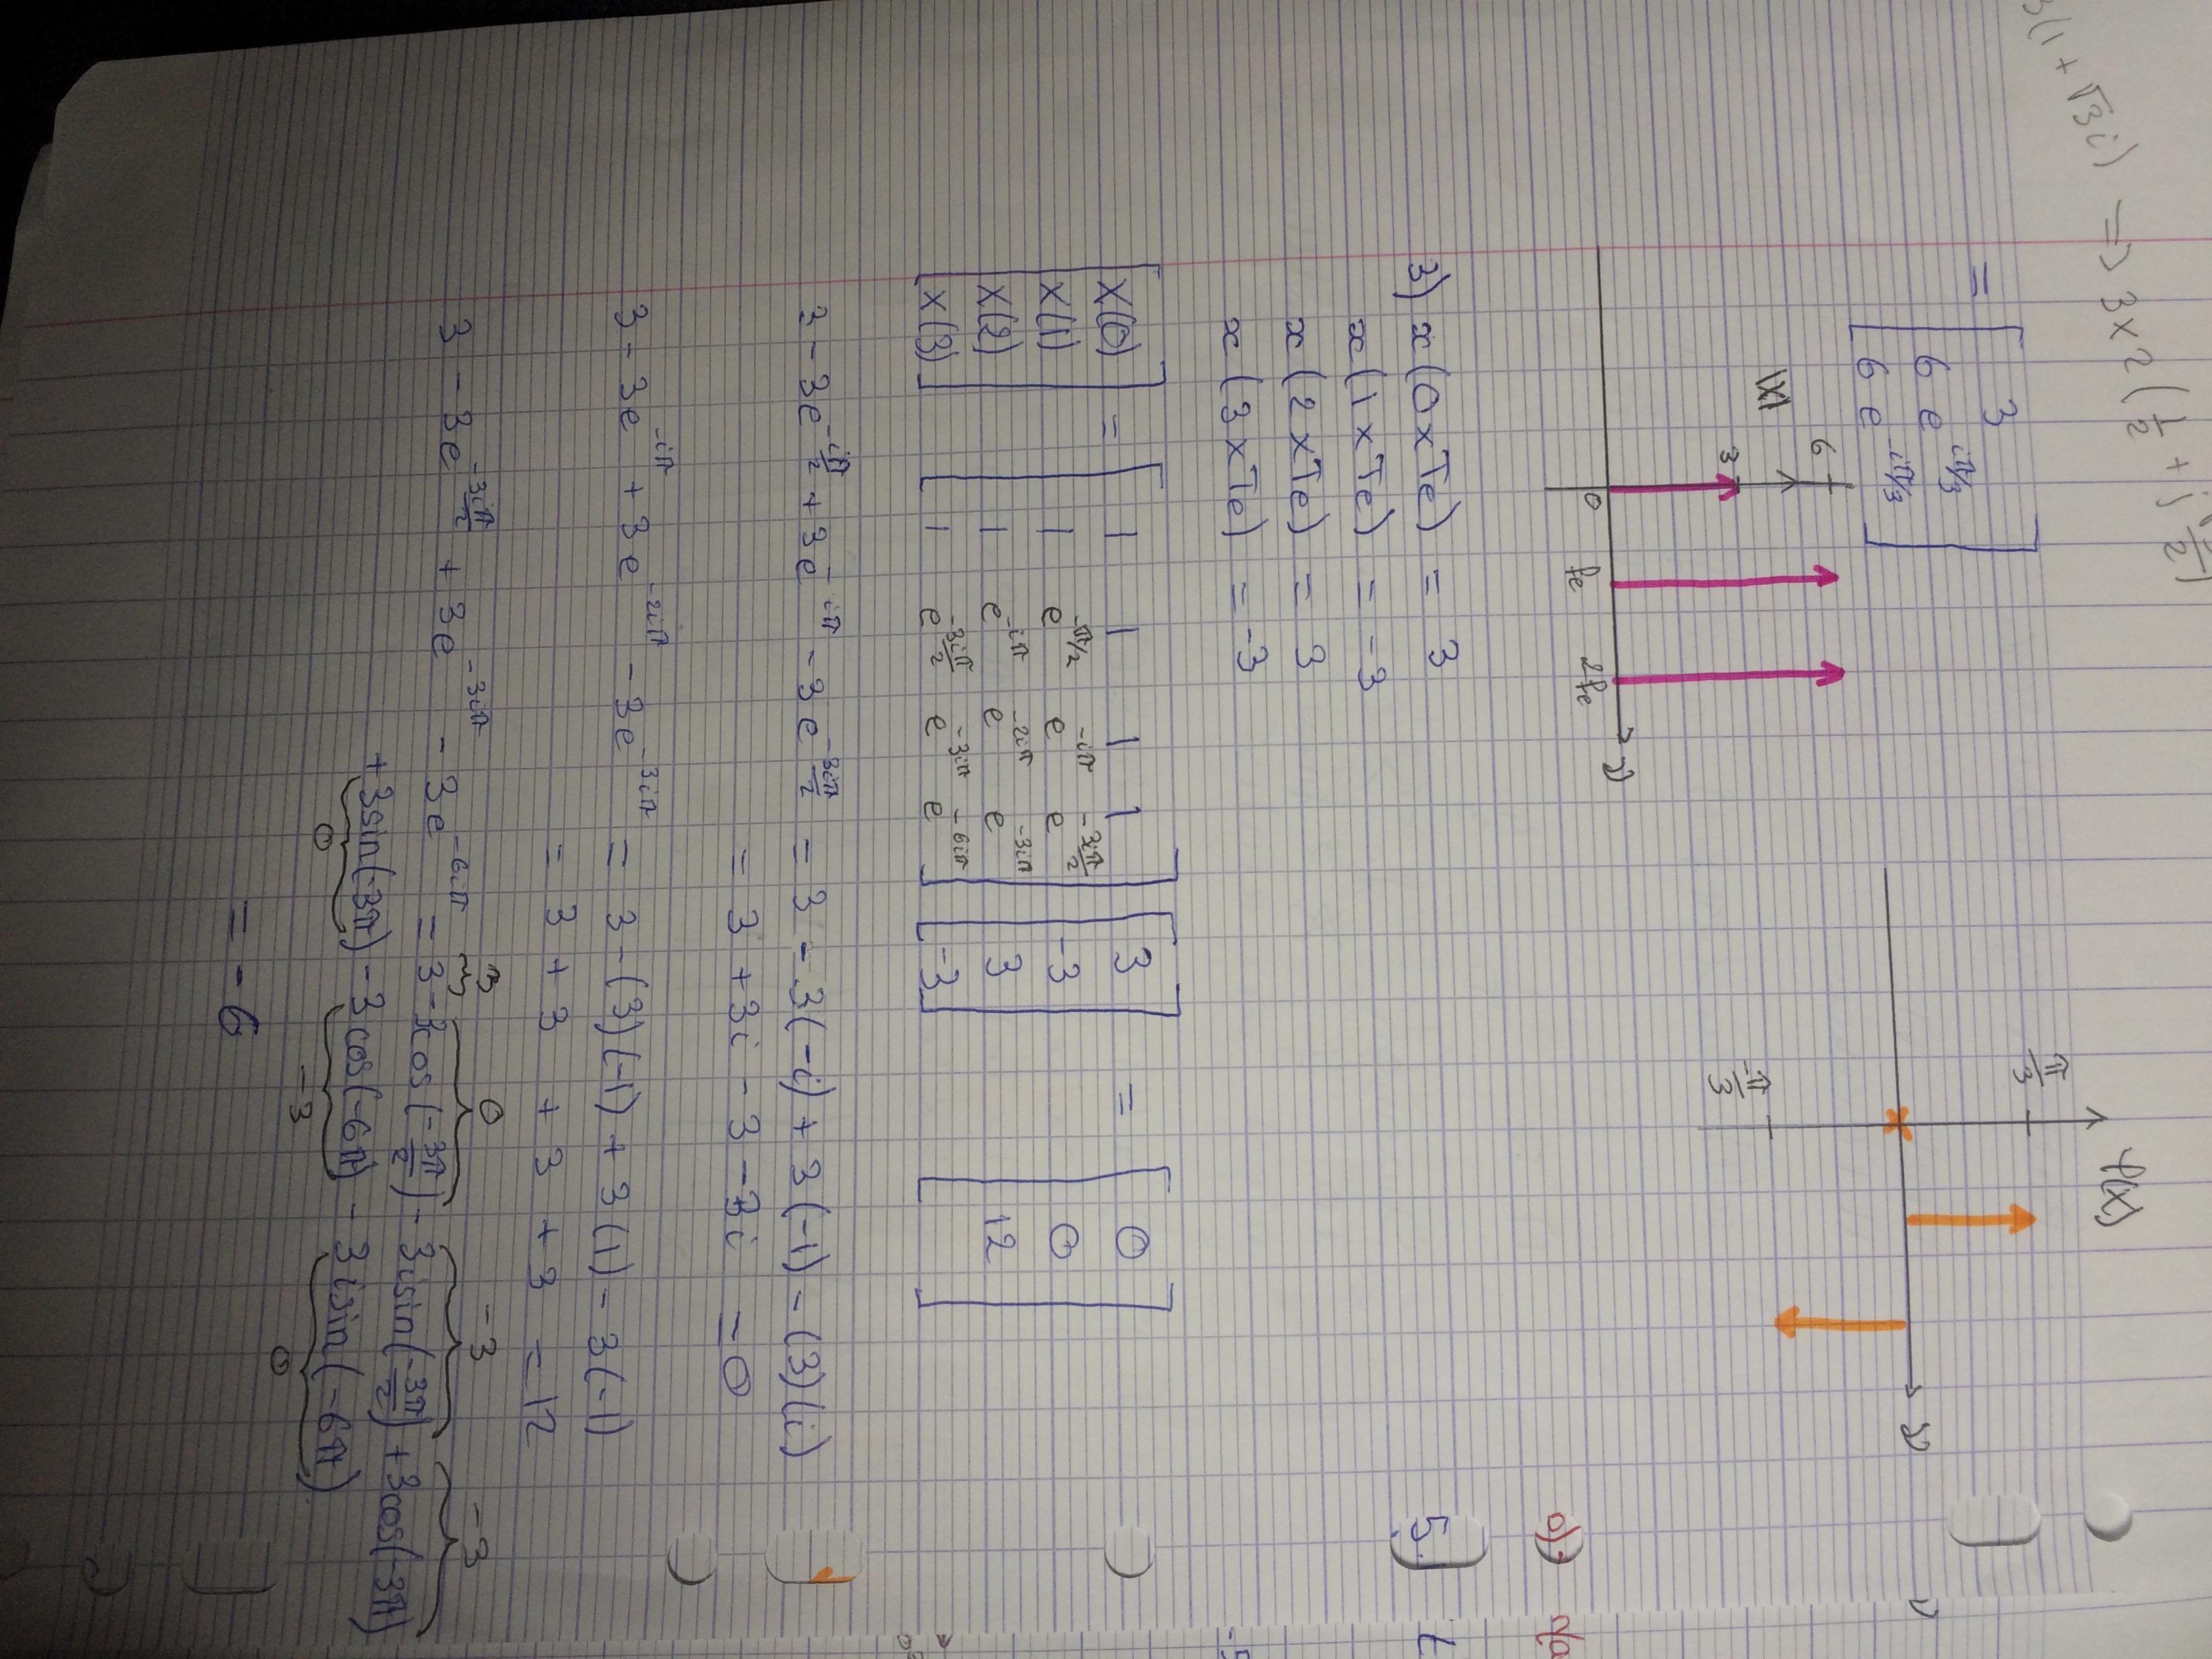 3(1 + √3i) => 3×2(1/2 + i
= [ 3
6 e^{iπ/3}
6 e^{-iπ/3} ]
|X|
6
3
0 fe 2fe ν
φ(x)
π/3
-π/3
ν
3) x(0×Te) = 3
x(1×Te) = -3
x(2×Te) = 3
x(3×Te) = -3
[ X(0) ] = [ 1 1 1 1 ] [ 3 ] = [ 0 ]
[ X(1) ] [ 1 e^{-π/2} e^{-iπ} e^{-3iπ/2} ] [ -3 ] [ 0 ]
[ X(2) ] [ 1 e^{-iπ} e^{-2iπ} e^{-3iπ} ] [ 3 ] [ 12 ]
[ X(3) ] [ 1 e^{-3iπ/2} e^{-3iπ} e^{-6iπ} ] [ -3 ]
3 - 3e^{-iπ/2} + 3e^{-iπ} - 3e^{-3iπ/2} = 3 - 3(-i) + 3(-1) - (3)(i)
= 3 + 3i - 3 - 3i = 0
3 - 3e^{-iπ} + 3e^{-2iπ} - 3e^{-3iπ} = 3 - (3)(-1) + 3(1) - 3(-1)
= 3 + 3 + 3 + 3 = 12
3 0 -3 -3
3 - 3e^{-3iπ/2} + 3e^{-3iπ} - 3e^{-6iπ} = 3 - 3cos(-3π/2) - 3isin(-3π/2) + 3cos(-3π)
+ 3sin(-3π) - 3cos(-6π) - 3isin(-6π)
0 -3 0
= -6
a)
5.
-5